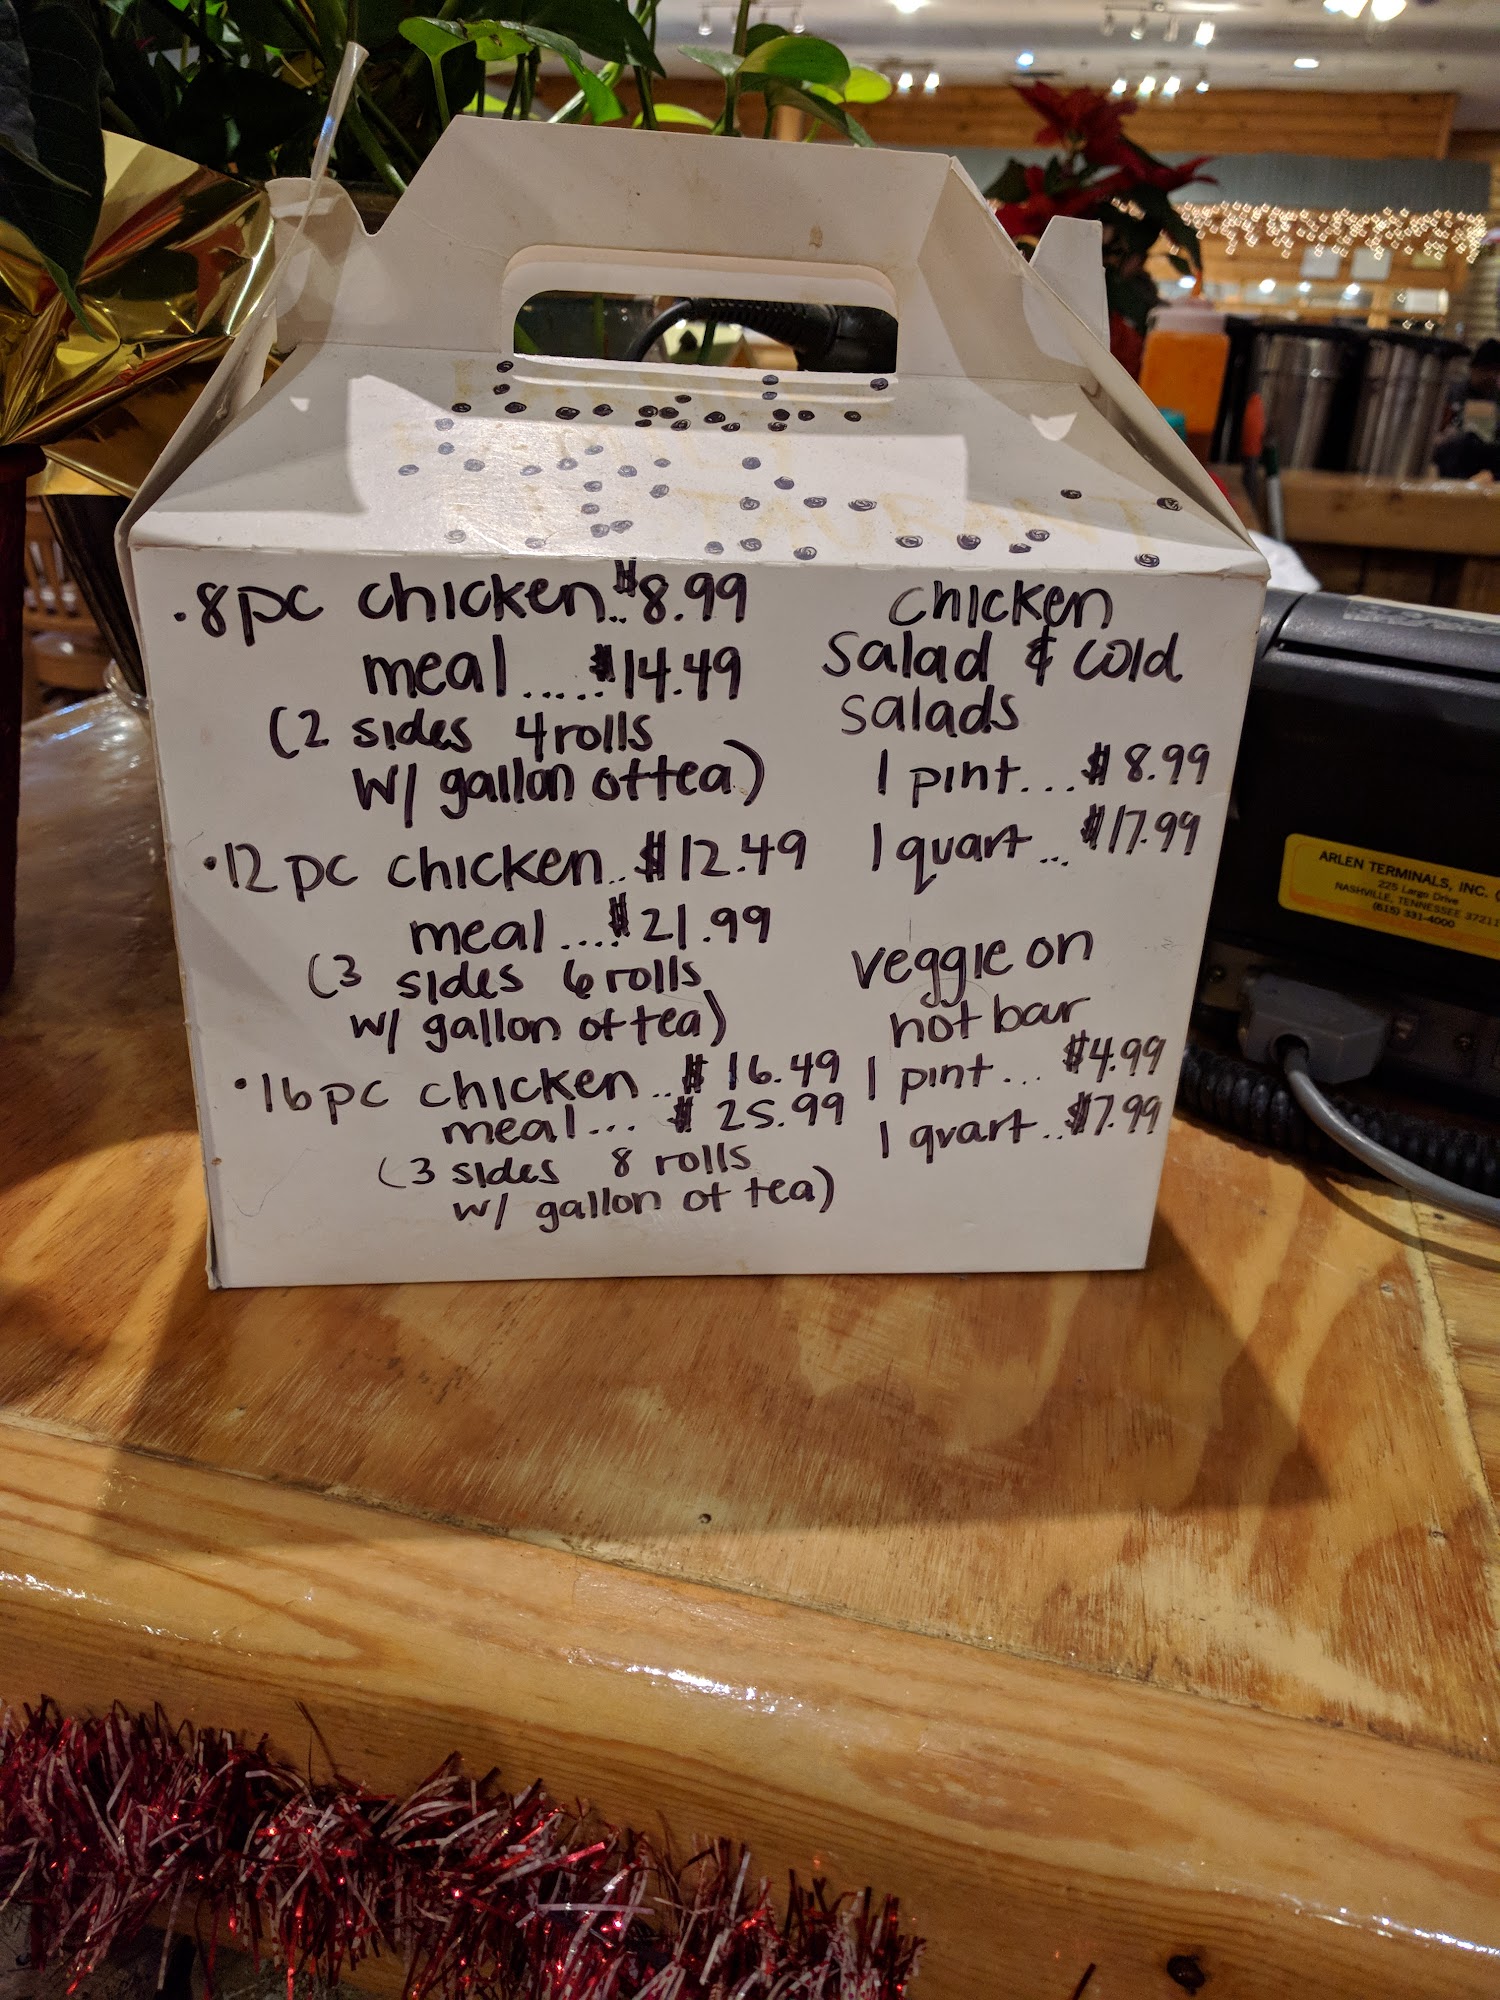 .8pc chicken..$8.99
meal.....$14.49
(2 sides 4 rolls
w/ gallon of tea)
•12pc chicken..$12.49
meal....$21.99
(3 sides 6 rolls
w/ gallon of tea)
•16pc chicken..$16.49
meal... $25.99
(3 sides 8 rolls
w/ gallon of tea)
chicken
salad & cold
salads
1 pint...$8.99
1 quart...$17.99
veggie on
hot bar
1 pint...$4.99
1 quart..$7.99
ARLEN TERMINALS, INC.
225 Largo Drive
NASHVILLE, TENNESSEE 37211
(615) 331-4000